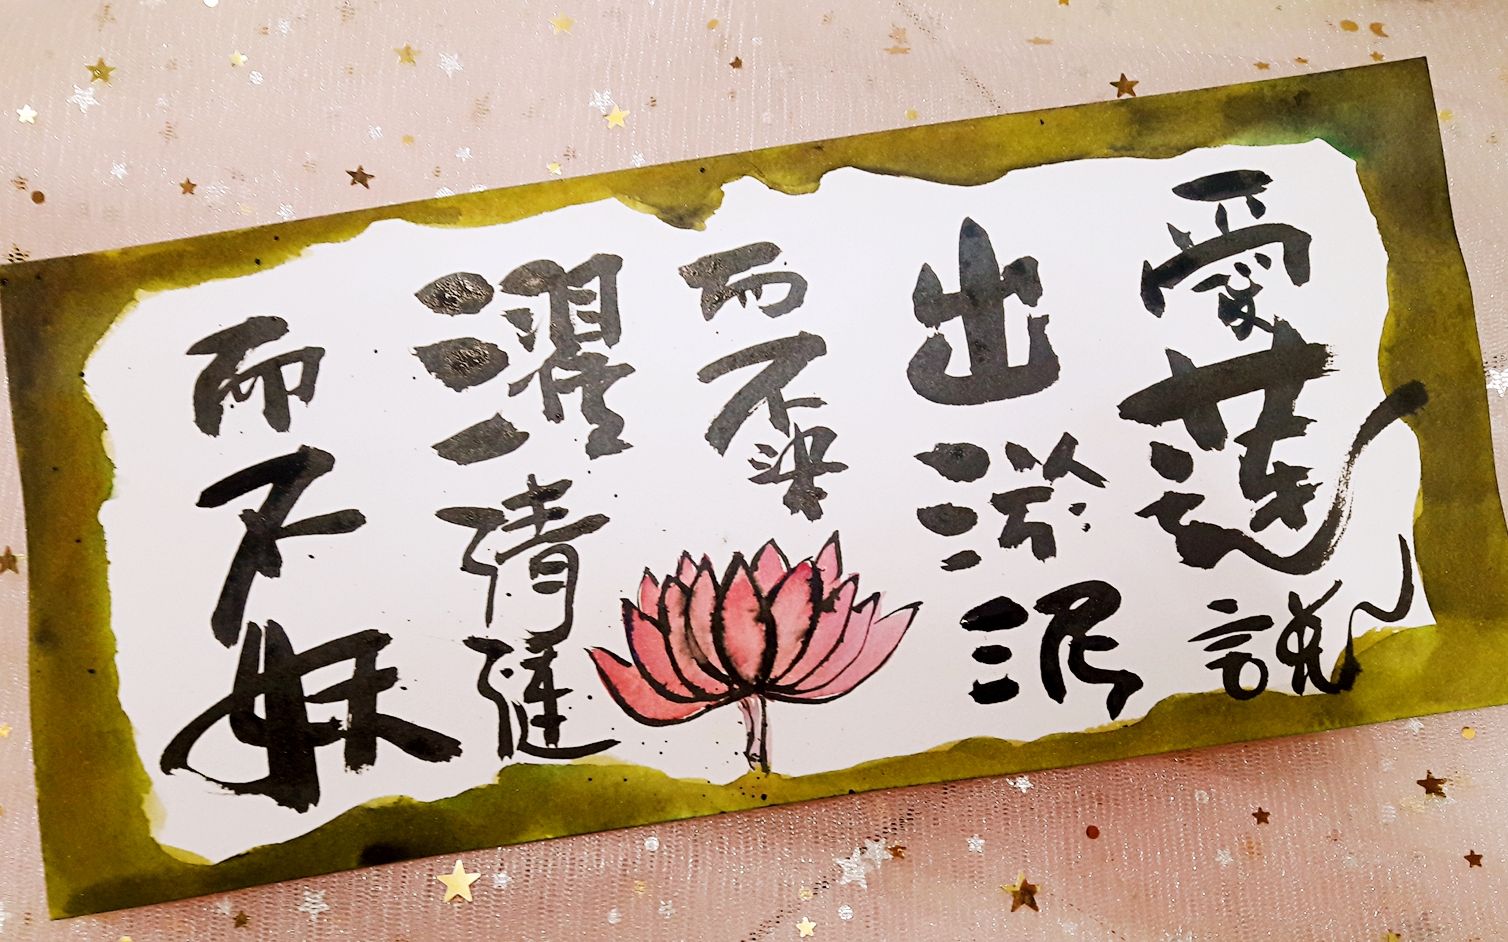 愛蓮說
出淤泥
而不染
濯清漣
而不妖